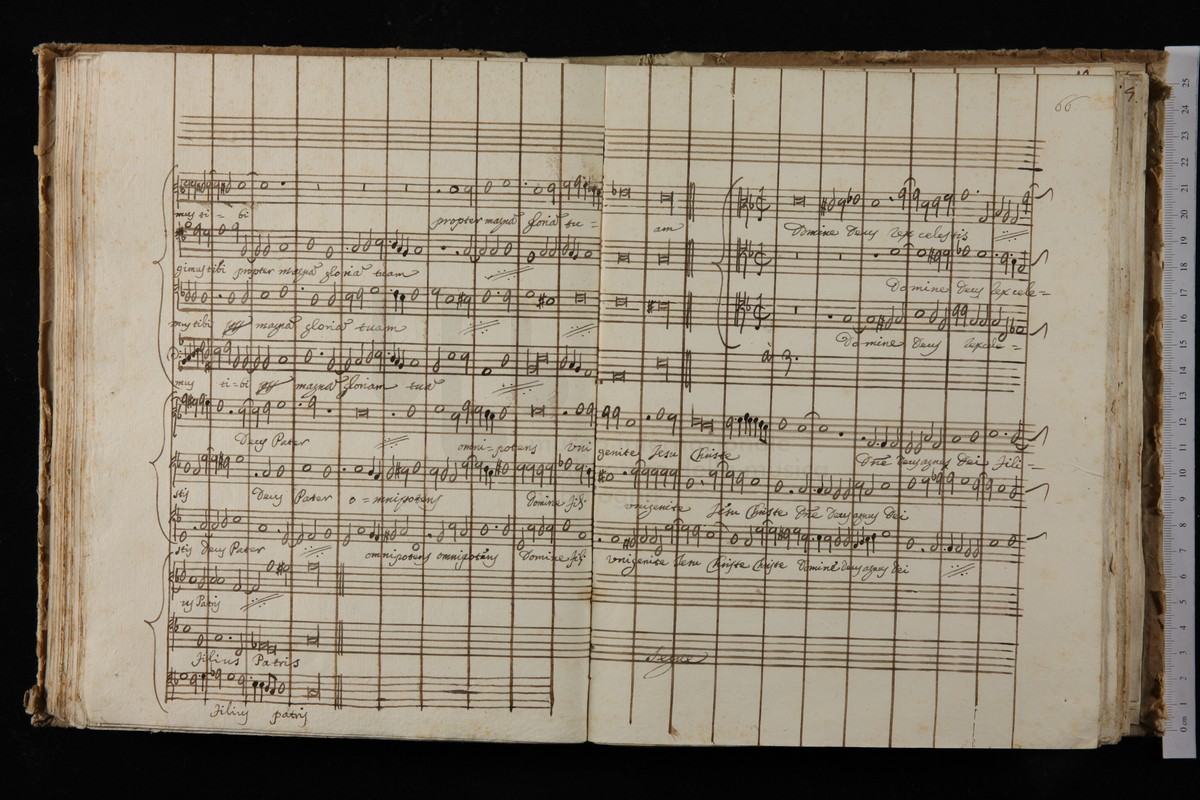 66
mus ti = bi propter magnã gloriã tu = am
Domine Deus rex celestis
gimus tibi propter magnã gloriã tuam
Domine Deus rex cele =
mus tibi magnã gloriã tuam
Domine Deus rex cele =
à 3.
mus ti = bi magnã gloriam tuã
Deus Pater omni = potens Uni genite Jesu Christe Dñe Deus agnus Dei Fili =
stis Deus Pater o = mnipotens Domine Fili unigenite Jesu Christe Dñe Deus agnus Dei
stis Deus Pater omnipotens omnipotens Domine Fili unigenite Jesu Christe Christe Domine Deus agnus Dei
us Patris
Filius Patris
Segue
Filius patris
0 cm 1 2 3 4 5 6 7 8 9 10 11 12 13 14 15 16 17 18 19 20 21 22 23 24 25